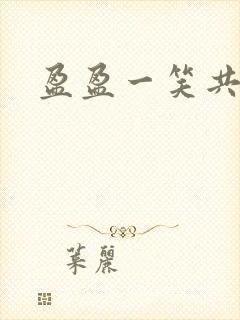 盈盈一笑共
葉麗